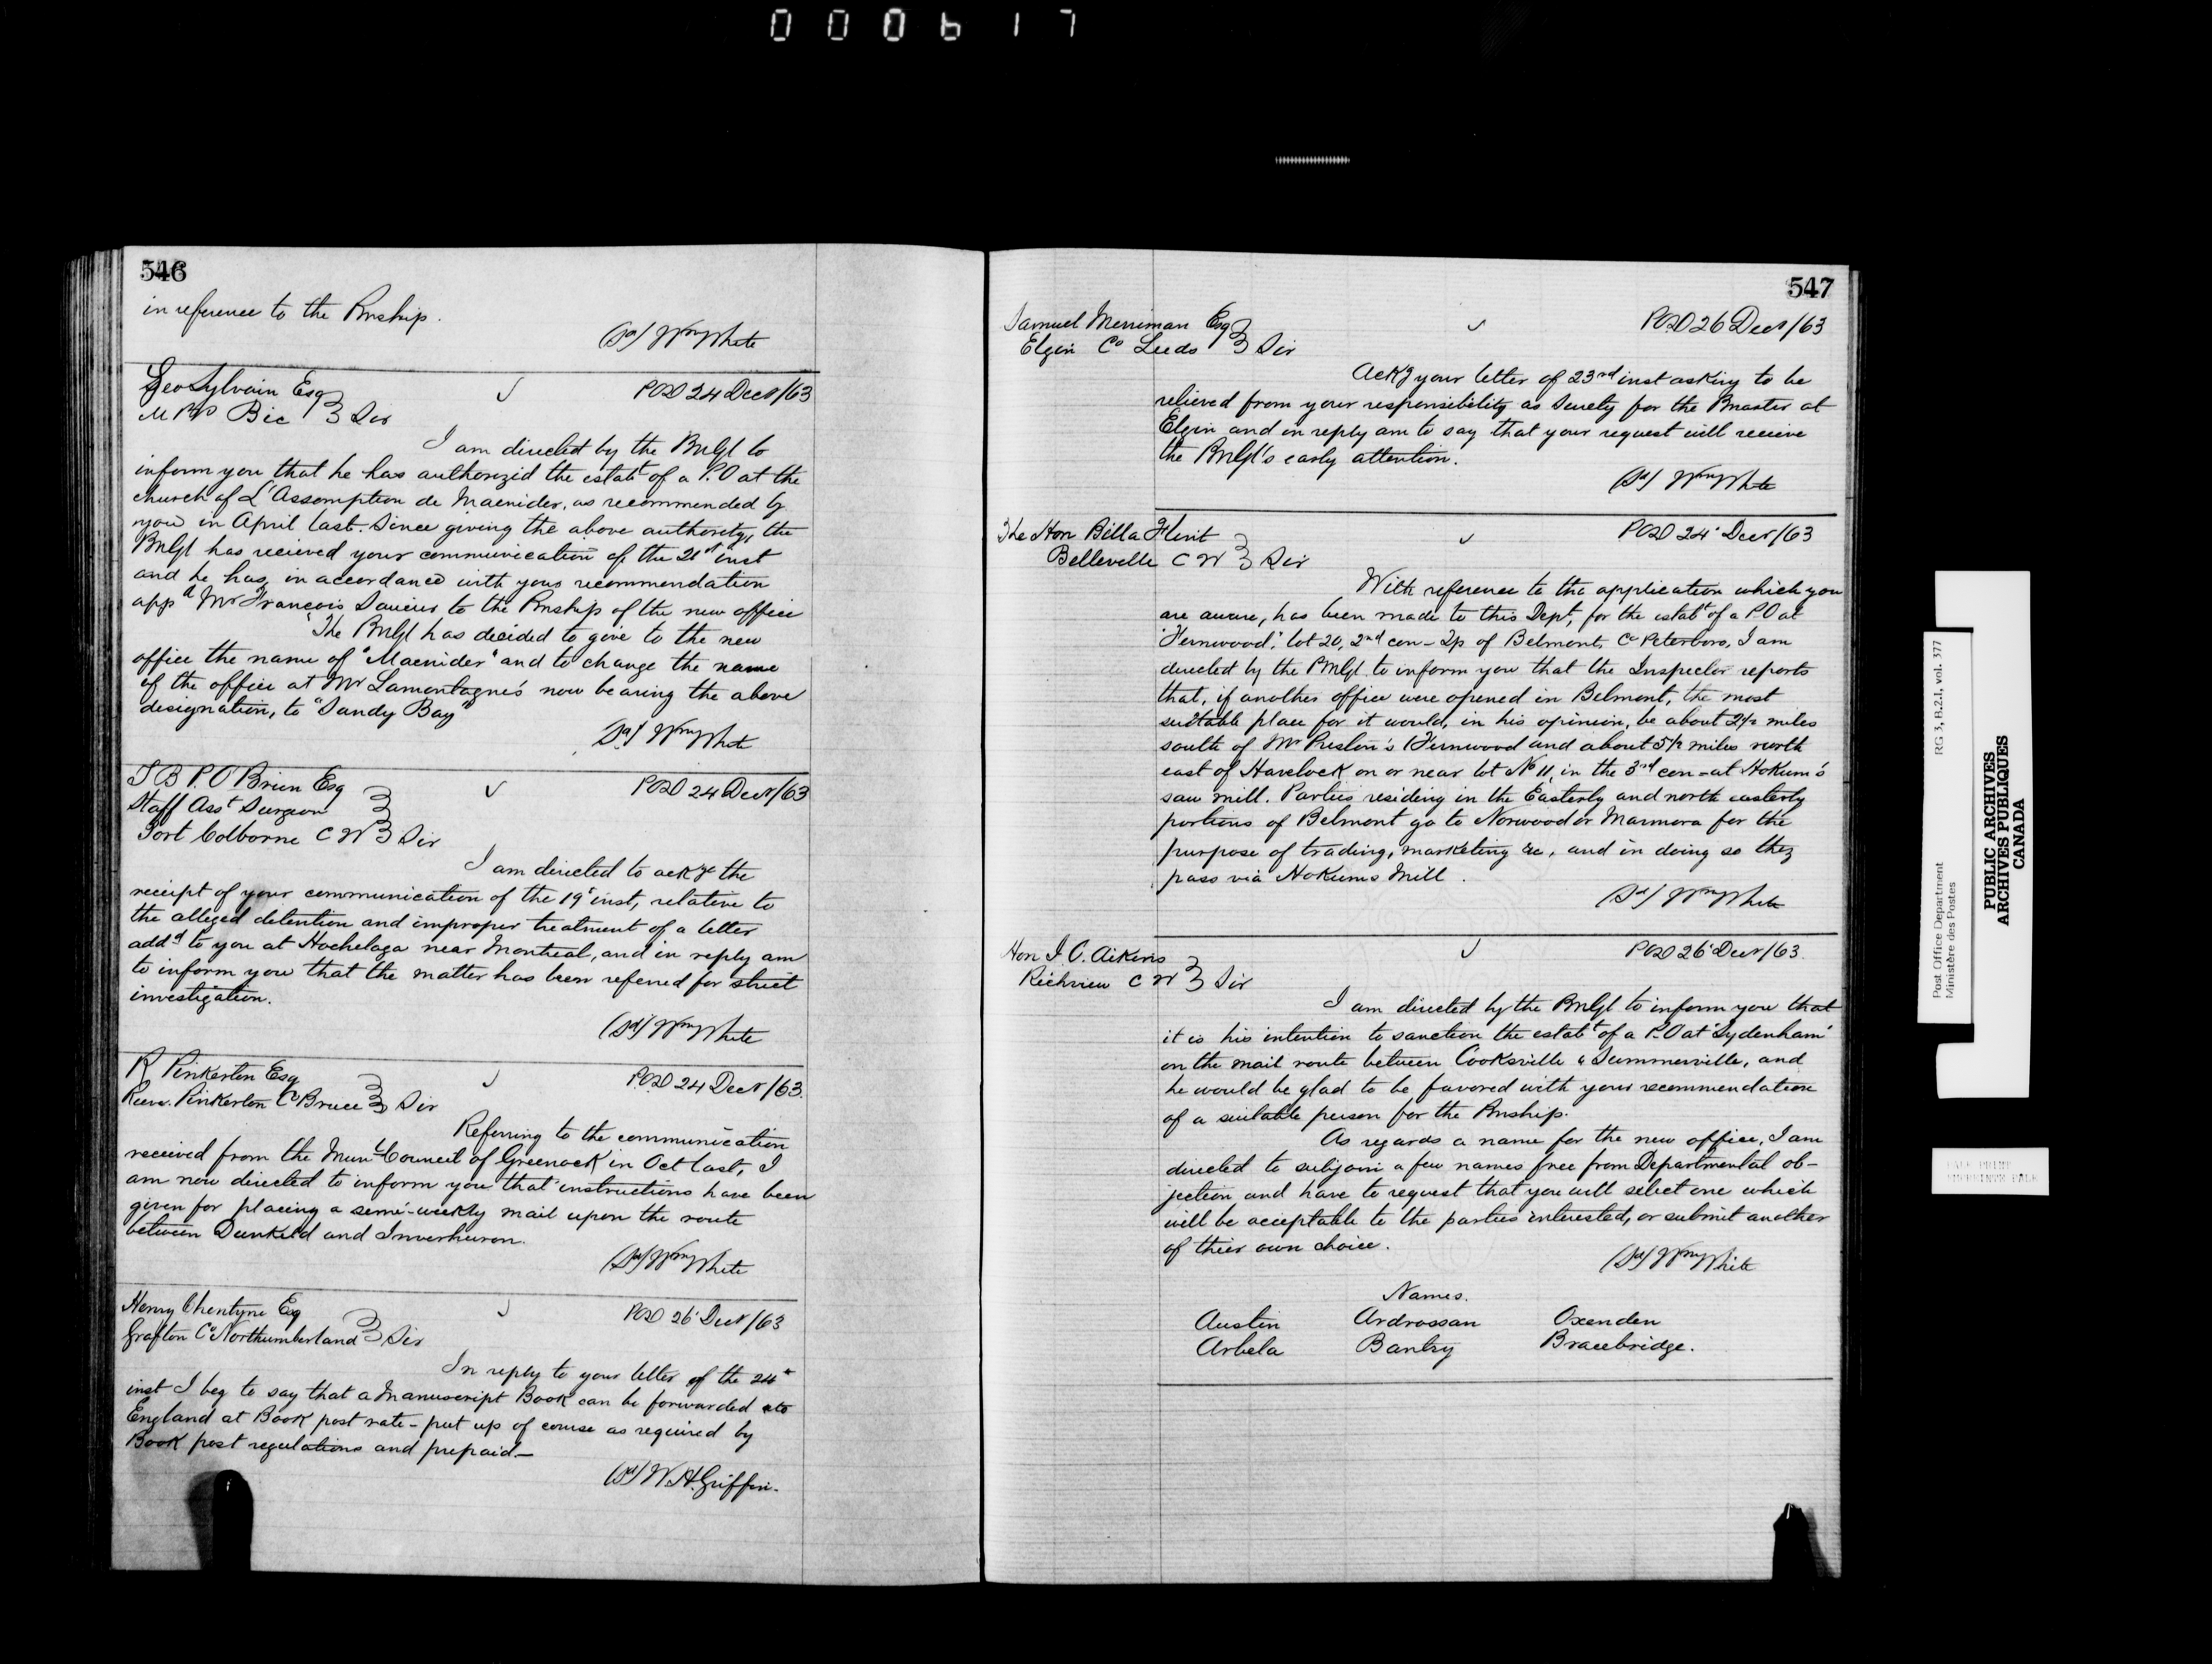 000617
546
in reference to the Pmship.
(Sd) Wm White
Geo Sylvain Esq
M P P Bic } Sir
POD 24 Decr/63
I am directed by the PMGl to
inform you that he has authorized the estabt of a P.O at the
church of L'Assomption de Macnider, as recommended by
you in April last. Since giving the above authority, the
PMGl has recieved your communication of the 21st inst
and he has, in accordance with your recommendation
appd Mr Francois Saucier to the Pmship of the new office
The PMGl has decided to give to the new
office the name of "Macnider" and to change the name
of the office at Mr Lamontagne's now bearing the above
designation, to "Sandy Bay"
(Sd) Wm White
T B P. O'Brien Esq
Staff Asst Surgeon
Port Colborne C W } Sir
POD 24 Decr/63
I am directed to ackge the
receipt of your communication of the 19t inst, relative to
the alleged detention and improper treatment of a letter
addd to you at Hochelaga near Montreal, and in reply am
to inform you that the matter has been referred for strict
investigation.
(Sd) Wm White
R Pinkerton Esq
Reeve. Pinkerton Co Bruce } Sir
P.OD 24 Decr/63.
Referring to the communication
received from the Munl Council of Greenock in Oct last, I
am now directed to inform you that instructions have been
given for placing a semi-weekly mail upon the route
between Dunkeld and Inverhuron.
(Sd) Wm White
Henry Esq
Grafton Co Northumberland } Sir
POD 26t Decr/63
In reply to your letter of the 24t
inst I beg to say that a Manuscript Book can be forwarded to
England at Book post rate - put up of course as required by
Book post regulations and prepaid.—
(Sd) W.H. Griffin.
547
Samuel Merriman Esq
Elgin Co Leeds } Sir
POD 26 Decr/63
Ackg your letter of 23rd inst asking to be
relieved from your responsibility as Surety for the Pmaster at
Elgin and in reply am to say that your request will receive
the PMGl's early attention.
(Sd) Wm White
The Hon Billa Flint
Belleville C W } Sir
POD 24t Decr/63
With reference to the application which you
are aware, has been made to this Dept, for the estabt of a P.O at
"Fernwood", lot 20, 2nd con - Tp of Belmont, Co Peterboro, I am
directed by the PMGl to inform you that the Inspector reports
that, if another office were opened in Belmont, the most
suitable place for it would, in his opinion, be about 2½ miles
south of Mr Preston's (Fernwood and about 5½ miles north
east of Havelock on or near lot No 11, in the 3rd con - at Hokum's
saw mill. Parties residing in the Easterly and north easterly
portions of Belmont go to Norwood or Marmora for the
purpose of trading, marketing &c, and in doing so they
pass via Hokums Mill.
(Sd) Wm White
Hon J. C. Aikins
Richview C W } Sir
POD 26t Decr/63.
I am directed by the PMGl to inform you that
it is his intention to sanction the estabt of a P.O at "Sydenham"
on the mail route between Cooksville & Summerville, and
he would be glad to be favored with your recommendation
of a suitable person for the Pmship.
As regards a name for the new office, I am
directed to subjoin a few names free from Departmental ob-
jection and have to request that you will select one which
will be acceptable to the parties interested, or submit another
of their own choice.
(Sd) Wm White
Names.
Austin Ardrossan Oxenden
Arbela Bantry Bracebridge.
Post Office Department
Ministère des Postes
RG 3, B.2.1, vol. 377
PUBLIC ARCHIVES
ARCHIVES PUBLIQUES
CANADA